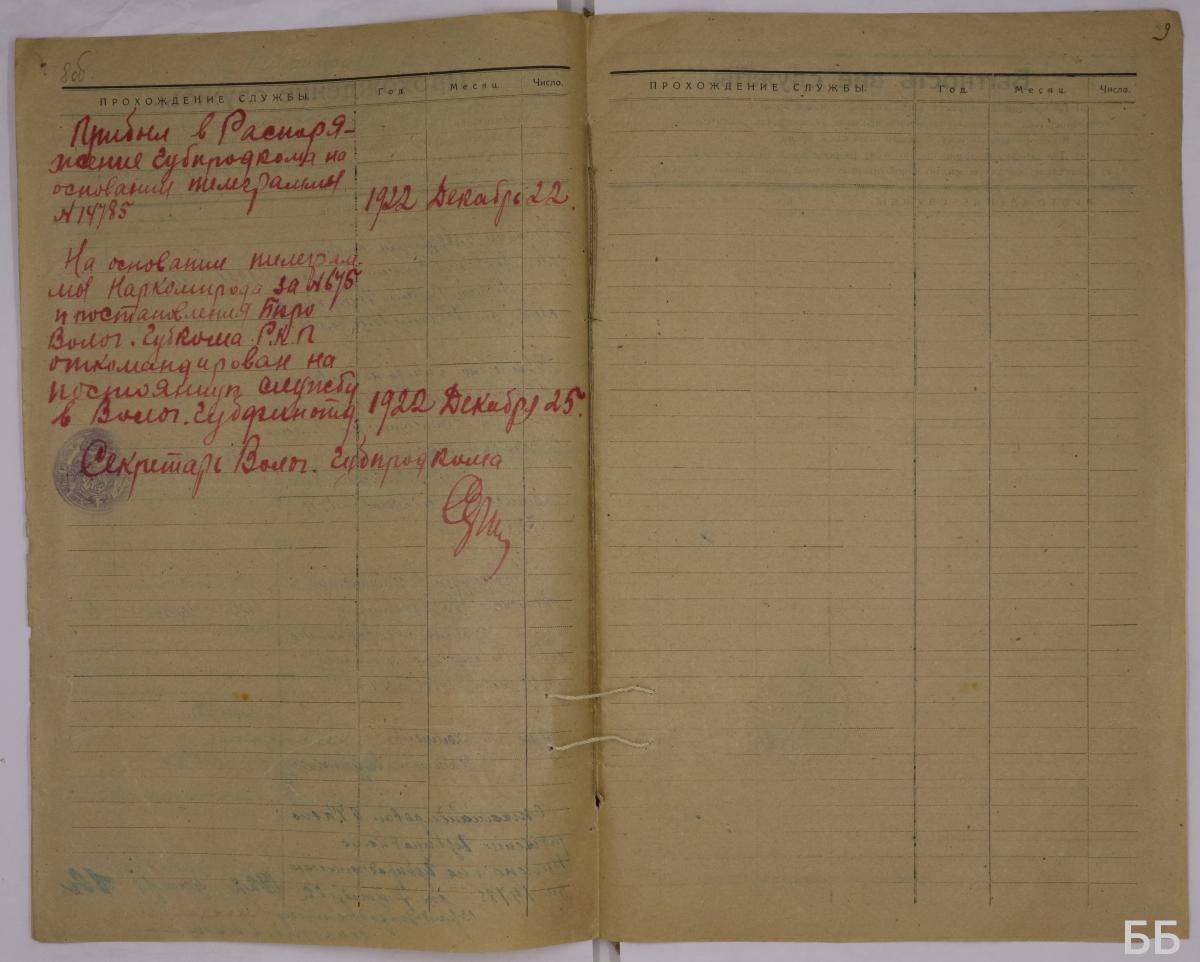 8об.
ПРОХОЖДЕНИЕ СЛУЖБЫ. Год. Месяц. Число.
Прибыл в Распоря-
жение Губпродкома на
основании телеграммы
№ 14785 1922 Декабрь 22.
На основании телеграм-
мы Наркомпрода за №675
и постановления Бюро
Волог. Губкома Р.К.П
откомандирован на
постоянную службу
в Волог. Губфинотд. 1922 Декабря 25.
Секретарь Волог. Губпродкома
9
ПРОХОЖДЕНИЕ СЛУЖБЫ. Год. Месяц. Число.
ББ